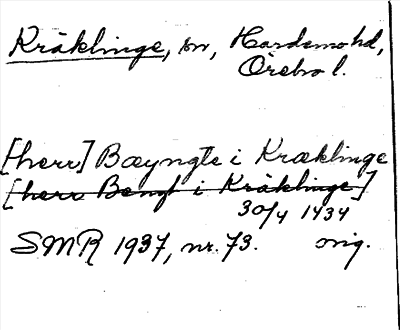 Kräklinge, sn, Hardemo hd,
Örebro l.
[herr] Bæyngte i Kræklinge
[herr Bengt i Kräklinge]
30/4 1434
SMR 1937, nr. 73. orig.